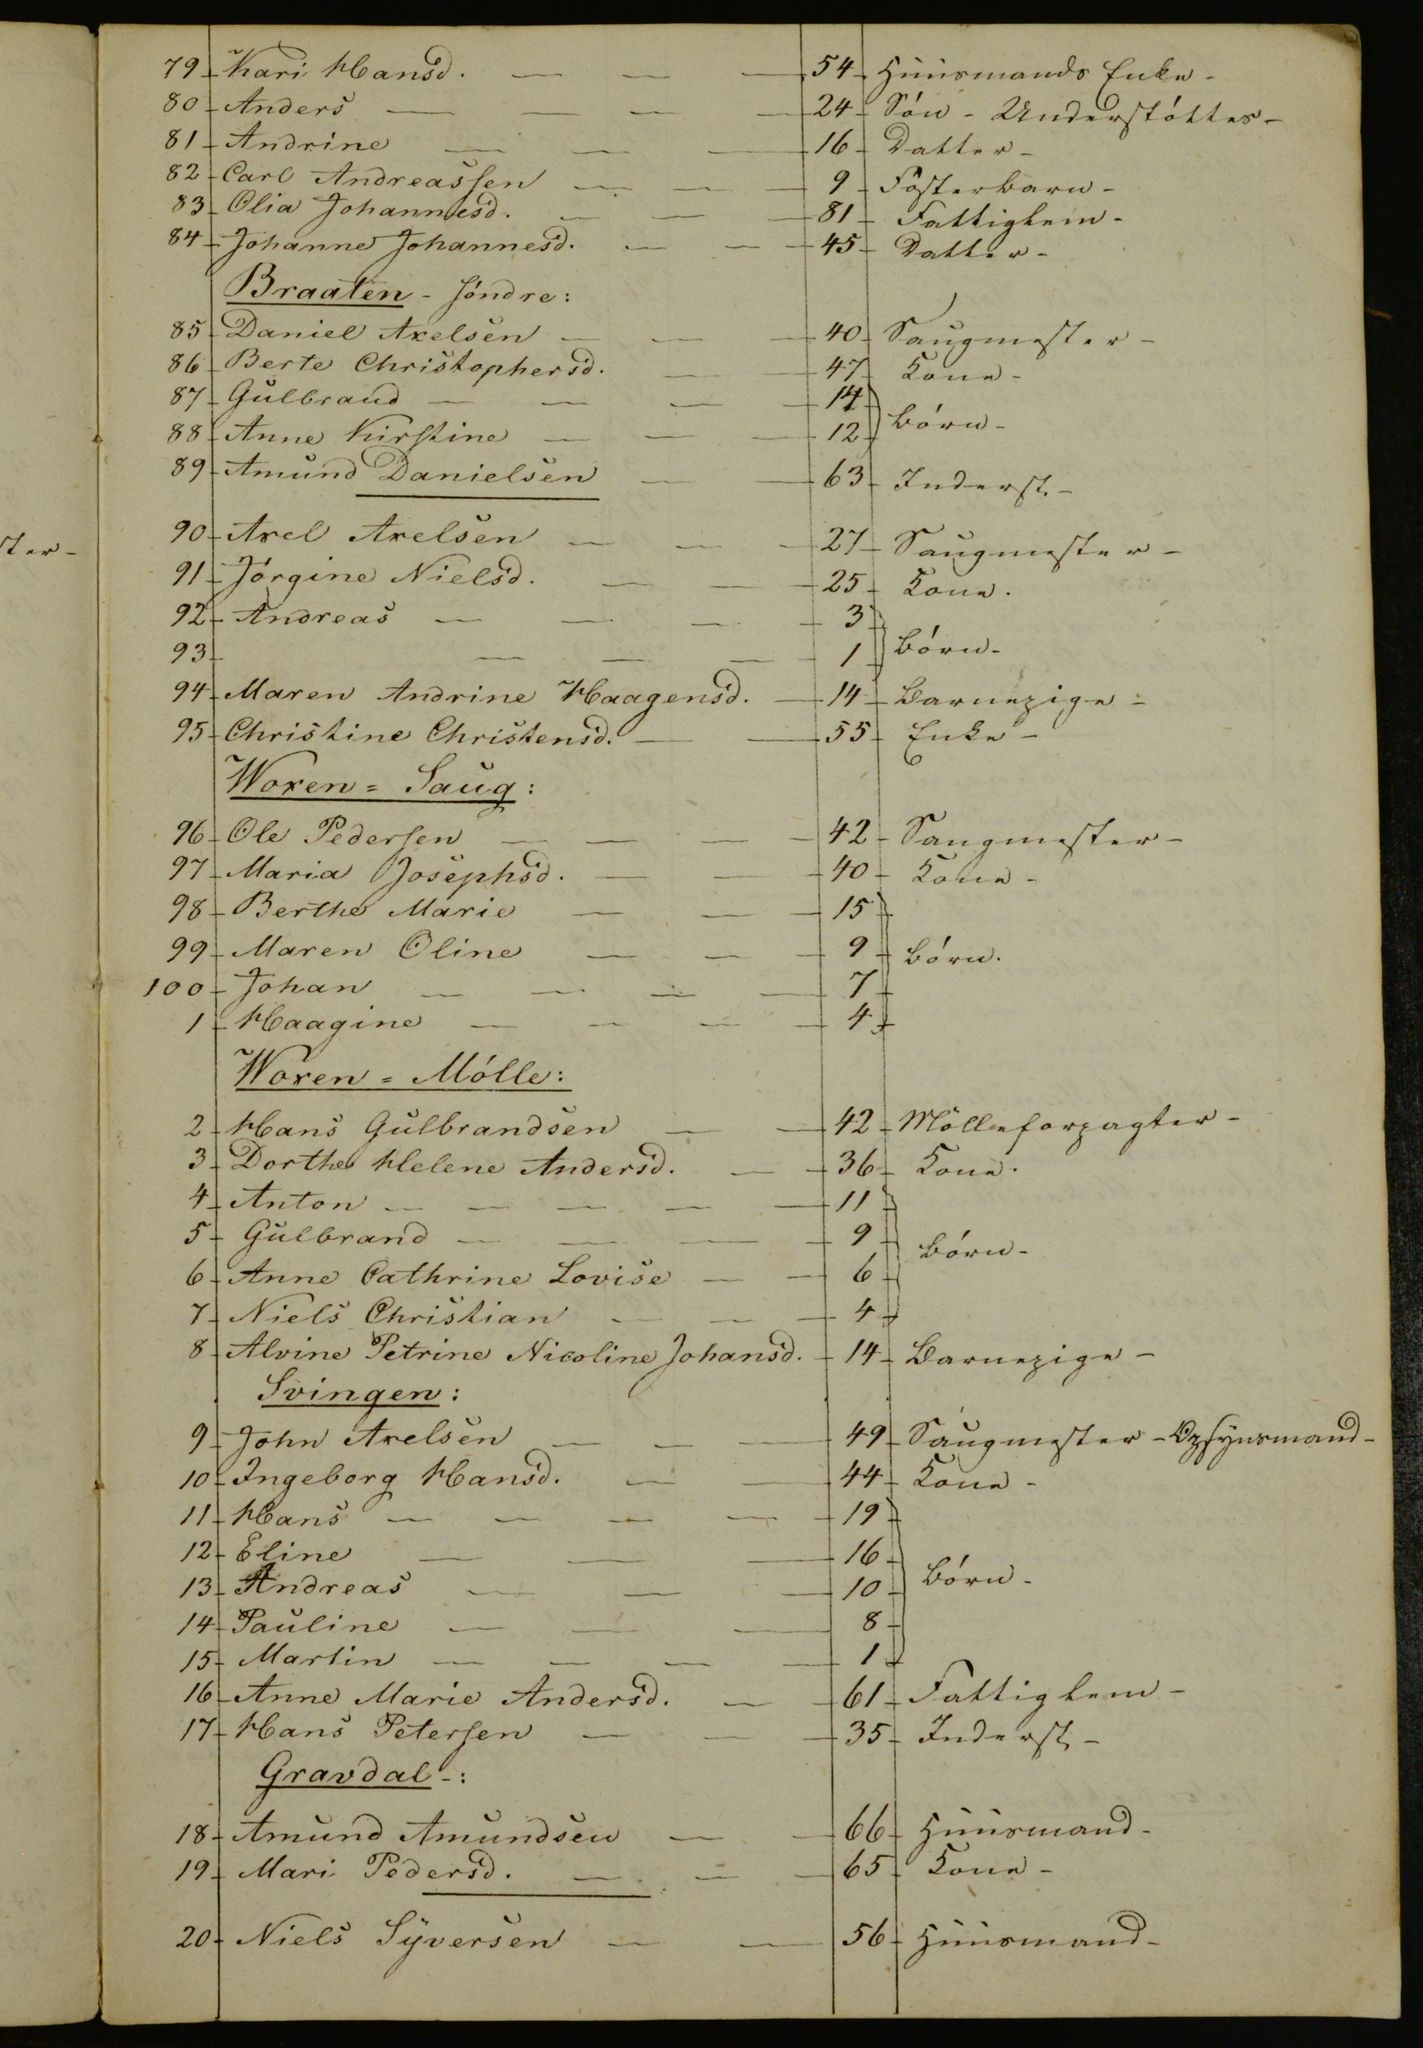 79 Kari Hansd. 54 Huusmands Enke
80 Anders 24 Søn - Understøttes
81 Andrine 16 Datter
82 Carl Andreassen 9 Fosterbarn
83 Olia Johannesd. 81 Fattiglem
84 Johanne Johannesd. 45 Datter
Braaten - søndre:
85 Daniel Axelsen 40 Saugmester
86 Berte Christophersd. 47 Kone
87 Gulbrand 14
88 Anne Kirstine 12 Børn
89 Amund Danielsen 63 Inderst
90 Axel Axelsen 27 Saugmester
ster
91 Jørgine Nielsd. 25 Kone.
92 Andreas 3
93 1 Børn
94 Maren Andrine Haagensd. 14 Barnepige
95 Christine Christensd. 55 Enke
Woxen = Saug:
96 Ole Pedersen 42 Saugmester
97 Maria Josephsd. 40 Kone
98 Berthe Marie 15
99 Maren Oline 9 Børn.
100 Johan 7
1 Haagine 4
Woxen = Mølle:
2 Hans Gulbrandsen 42 Mølleforpagter
3 Dorthe Helene Andersd. 36 Kone.
4 Anton 11
5 Gulbrand 9 Børn
6 Anne Cathrine Lovise 6
7 Niels Christian 4
8 Alvine Petrine Nicoline Johansd. 14 Barnepige
Svingen:
9 John Axelsen 49 Saugmester - Opsynsmand
10 Ingeborg Hansd. 44 Kone
11 Hans 19
12 Eline 16
13 Andreas 10 Børn
14 Pauline 8
15 Martin 1
16 Anne Marie Andersd. 61 Fattiglem
17 Hans Petersen 35 Inderst
Gravdal:
18 Amund Amundsen 66 Huusmand
19 Mari Pedersd. 65 Kone
20 Niels Syversen 56 Huusmand